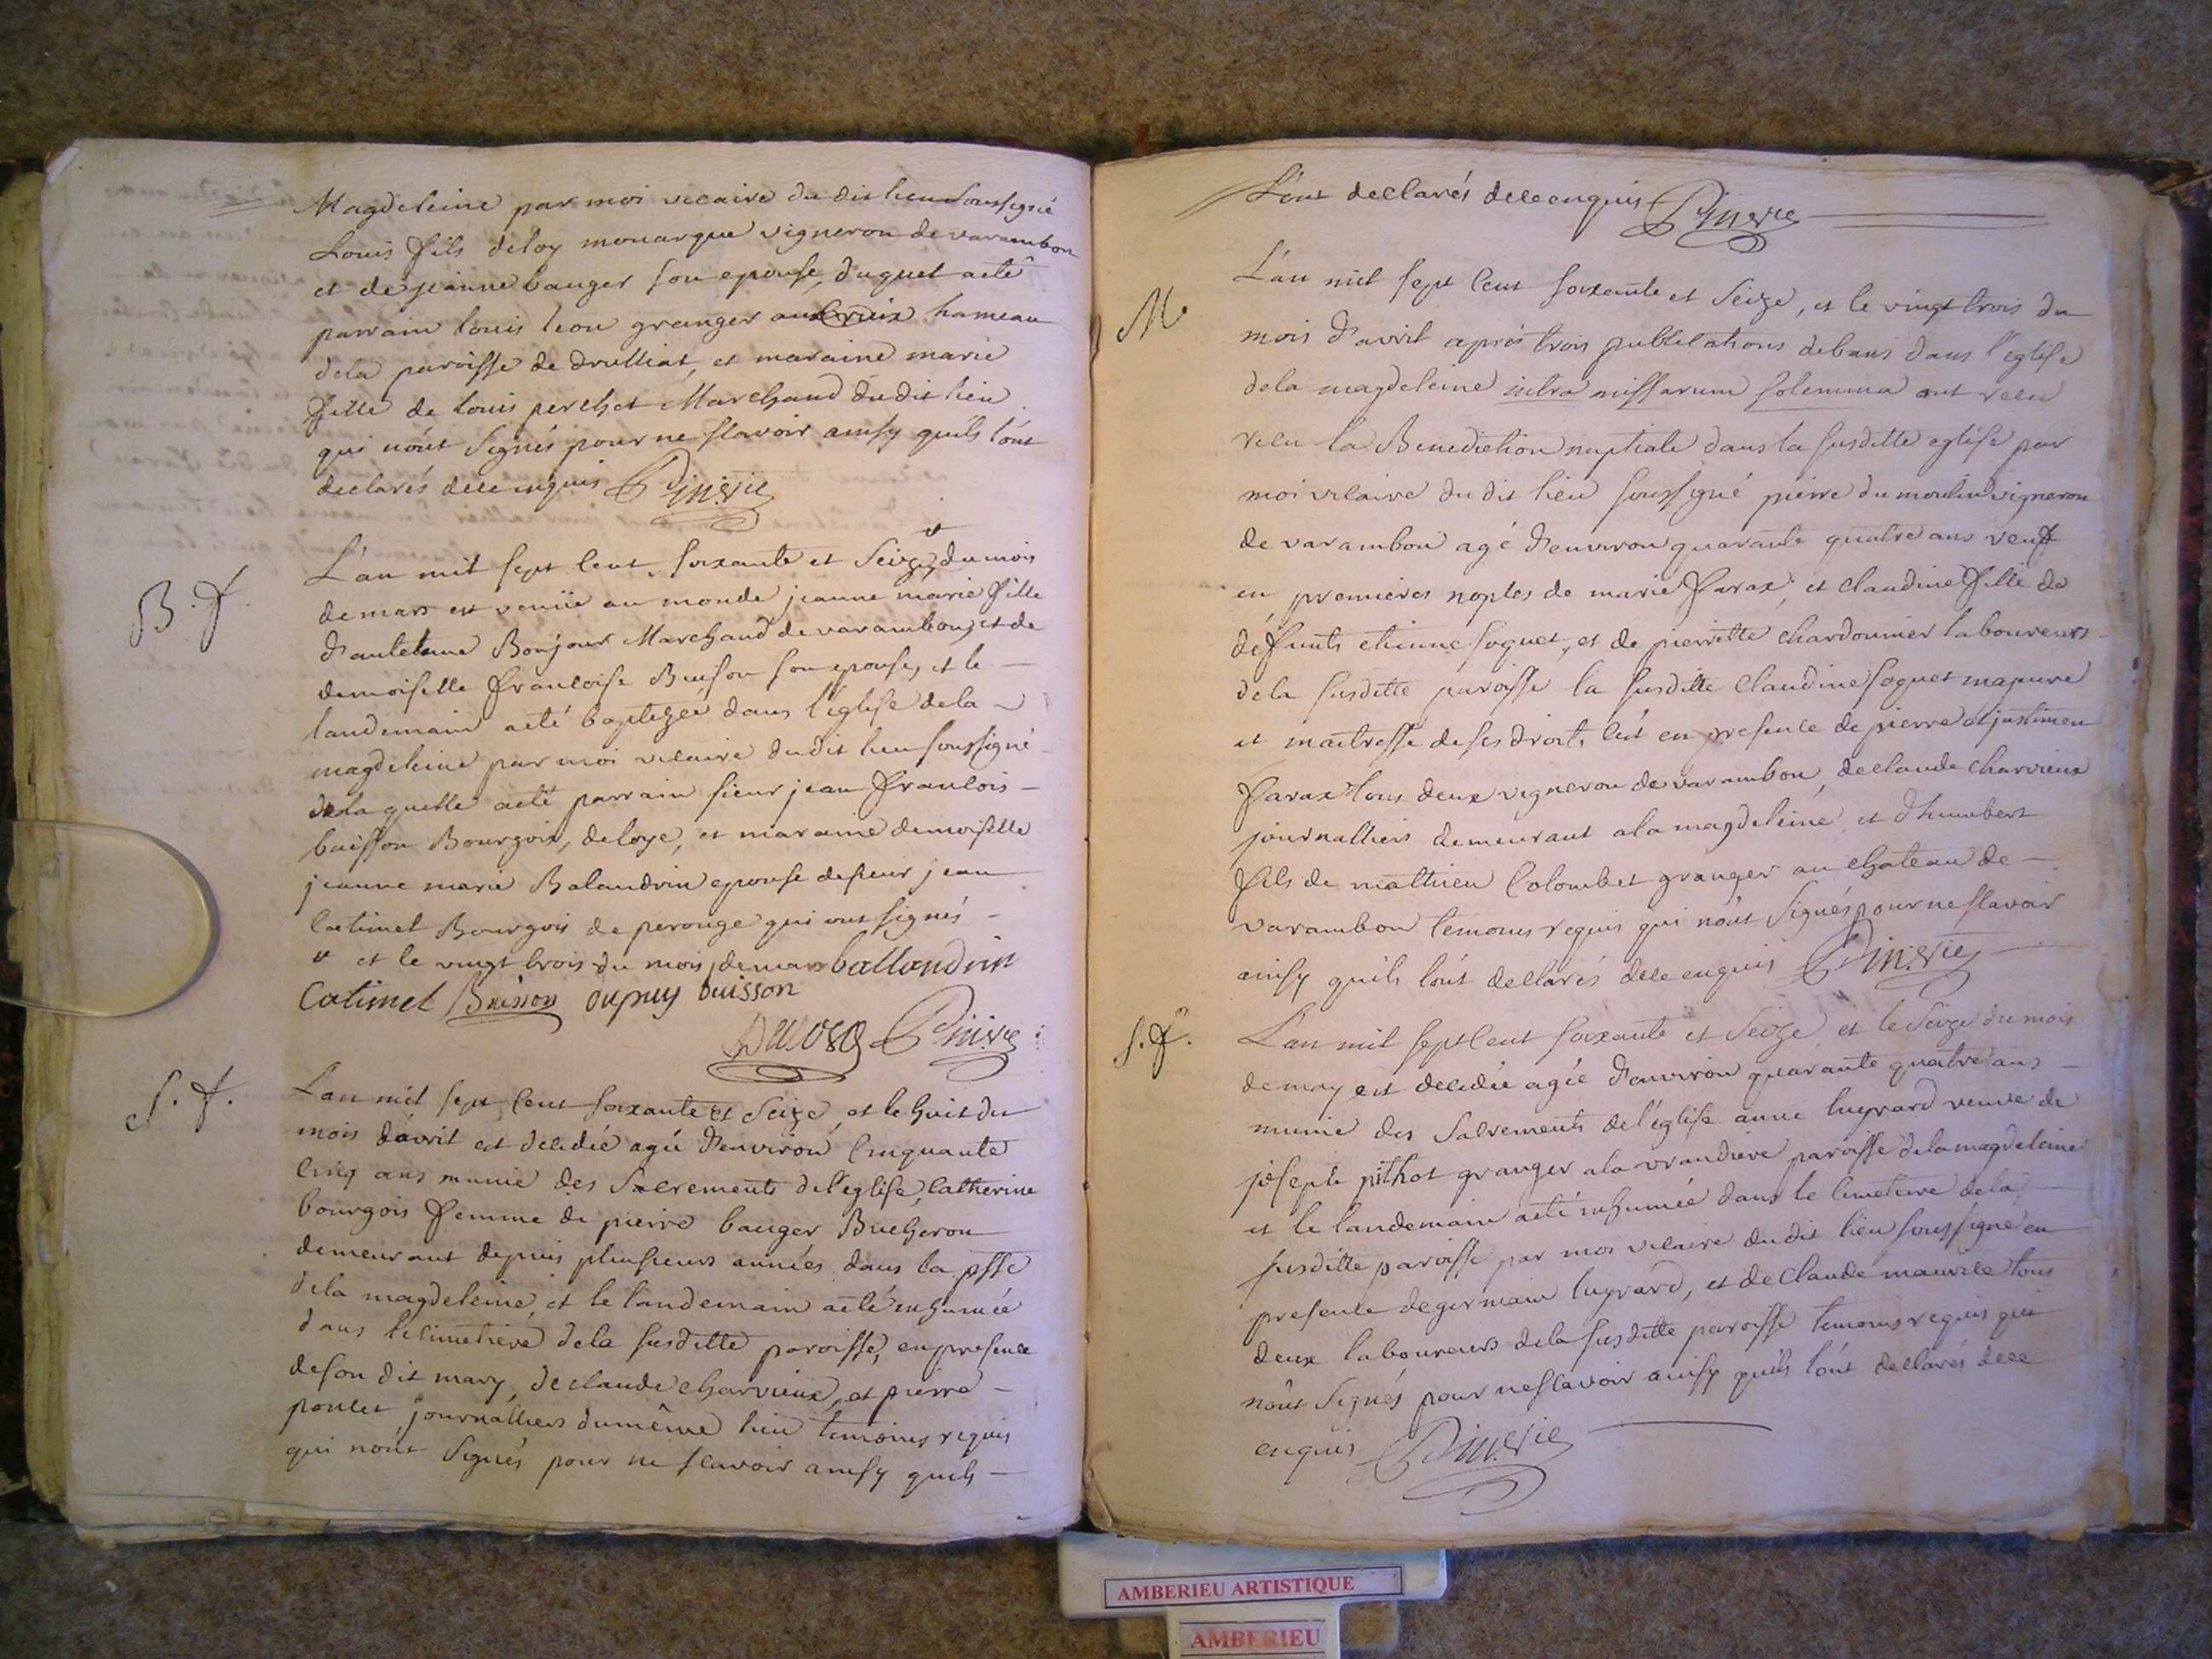 Magdeleine par moi vicaire du dit lieu soussigné
Louis fils deloy monarque vigneron de varambon
et de jeanne bauger son epouse, duquel aeté
parrain louis leon granger aux Croix hameau
dela paroisse de druilliat, et maraine marie
fille de louis perchet Marchand dudit lieu
qui n'ont signés pour ne scavoir ainsy quils l'ont
declarés dece enquis
B. f.
L'an mil sept cent soixante et seize, du mois
de mars est venüe au monde jeanne marie fille
d'antelme Bonjour Marchand de varambon, et de
demoiselle francoise Buison son epouse, et le
landemain aeté baptizée dans l'église dela
magdeleine par moi vicaire dudit lieu soussigné
dela quelle aeté parrain sieur jean francois
buisson Bourgois, deloye, et maraine demoiselle
jeanne marie Balandrin epouse desieur jean
Catimel Bourgois de perouge qui ont signés
# et le vingt trois du mois demars ballandrin
Catimel Buisson dupuy buisson
S. f.
L'an mil sept cent soixante et seize, et le huit du
mois d'avril est decedée agée d'environ cinquante
cinq ans munie des Sacrements de l'eglise, Catherine
bourgois femme de pierre bauger Bucheron
demeurant depuis plusieurs années dans la psse
dela magdeleine, et le landemain aeté inhumée
dans le cimetiere dela susditte paroisse, en presence
deson dit mary, declaude charvieux, et pierre
poncet journalliers dumême lieu temoins requis
qui n'ont signés pour ne scavoir ainsy quils
L'ont declarés dece enquis
M.
L'an mil sept cent soixante et seize, et le vingt trois du
mois d'avril après trois publications debans dans l'eglise
dela magdeleine intra missarum solemnia ont recu
recu la Benediction nuptiale dans la susditte eglise par
moi vicaire du dit lieu soussigné pierre du moulin vigneron
de varambon agé d'environ quarante quatre ans veuf
en premieres noples de marie farax, et claudine fille de
deffunts etienne foquet, et de pierrette chardonnier laboureurs
dela susditte paroisse la susditte Claudine foquet majeure
et maitresse de ses droits, cest en presence de pierre et justinien
farax tous deux vigneron de varambon, declaude charvieux
journalliers demeurant ala magdeleine, et d'humbert
fils de mathieu Colombet granger au chateau de
varambon temoins requis qui n'ont signés pour ne scavoir
ainsy quils l'ont declarés dece enquis
S. f.
L'an mil sept cent soixante et seize, et le seize du mois
de may est decedée agée d'environ quarante quatre ans
munie des Sacrements de l'eglise anne luyrard veuve de
joseph pithot granger ala vrandiere paroisse dela magdeleine
et le landemain aeté inhumée dans le cimetiere dela
susditte paroisse par moi vicaire dudit lieu soussigné en
presence degermain luyrard, et declaude maurice tous
deux laboureurs dela susditte paroisse temoins requis qui
n'ont signés pour ne scavoir ainsy quils l'ont declarés dece
enquis
AMBERIEU ARTISTIQUE
AMBERIEU